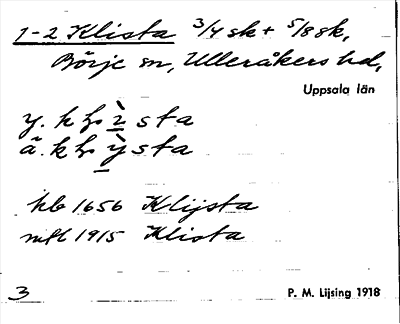 1-2 Klista 3/4 sk + 5/8 sk,
Börje sn, Ulleråkers hd,
Uppsala län
y. k ì s t a
ä. k ỳ s t a
kb 1656 Klijsta
mtl 1915 Klista
3 P. M. Lijsing 1918